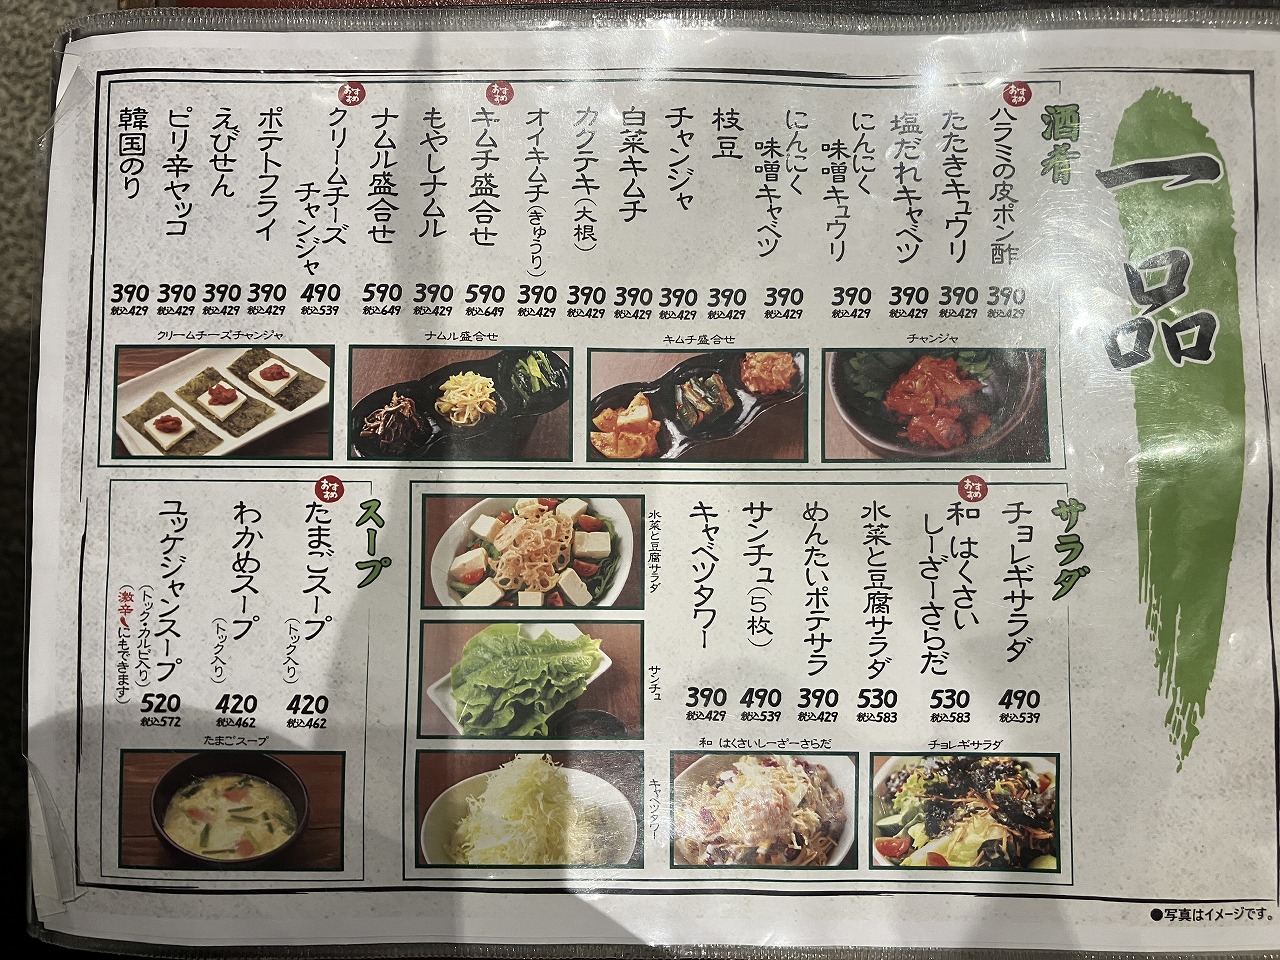 一品
酒肴
おすすめ
ハラミの皮ポン酢
390
税込429
たたきキュウリ
390
税込429
塩だれキャベツ
390
税込429
にんにく
味噌キュウリ
390
税込429
にんにく
味噌キャベツ
390
税込429
枝豆
390
税込429
チャンジャ
390
税込429
白菜キムチ
390
税込429
カクテキ(大根)
390
税込429
オイキムチ(きゅうり)
390
税込429
おすすめ
キムチ盛合せ
590
税込649
もやしナムル
390
税込429
ナムル盛合せ
590
税込649
おすすめ
クリームチーズ
チャンジャ
490
税込539
ポテトフライ
390
税込429
えびせん
390
税込429
ピリ辛ヤッコ
390
税込429
韓国のり
390
税込429
クリームチーズチャンジャ
ナムル盛合せ
キムチ盛合せ
チャンジャ
サラダ
チョレギサラダ
490
税込539
おすすめ
和 はくさい
しーざーさらだ
530
税込583
水菜と豆腐サラダ
530
税込583
めんたいポテサラ
390
税込429
サンチュ(5枚)
490
税込539
キャベツタワー
390
税込429
水菜と豆腐サラダ
サンチュ
キャベツタワー
和 はくさいしーざーさらだ
チョレギサラダ
スープ
おすすめ
たまごスープ
(トック入り)
420
税込462
わかめスープ
(トック入り)
420
税込462
ユッケジャンスープ
(トック・カルビ入り)
(激辛にもできます)
520
税込572
たまごスープ
●写真はイメージです。